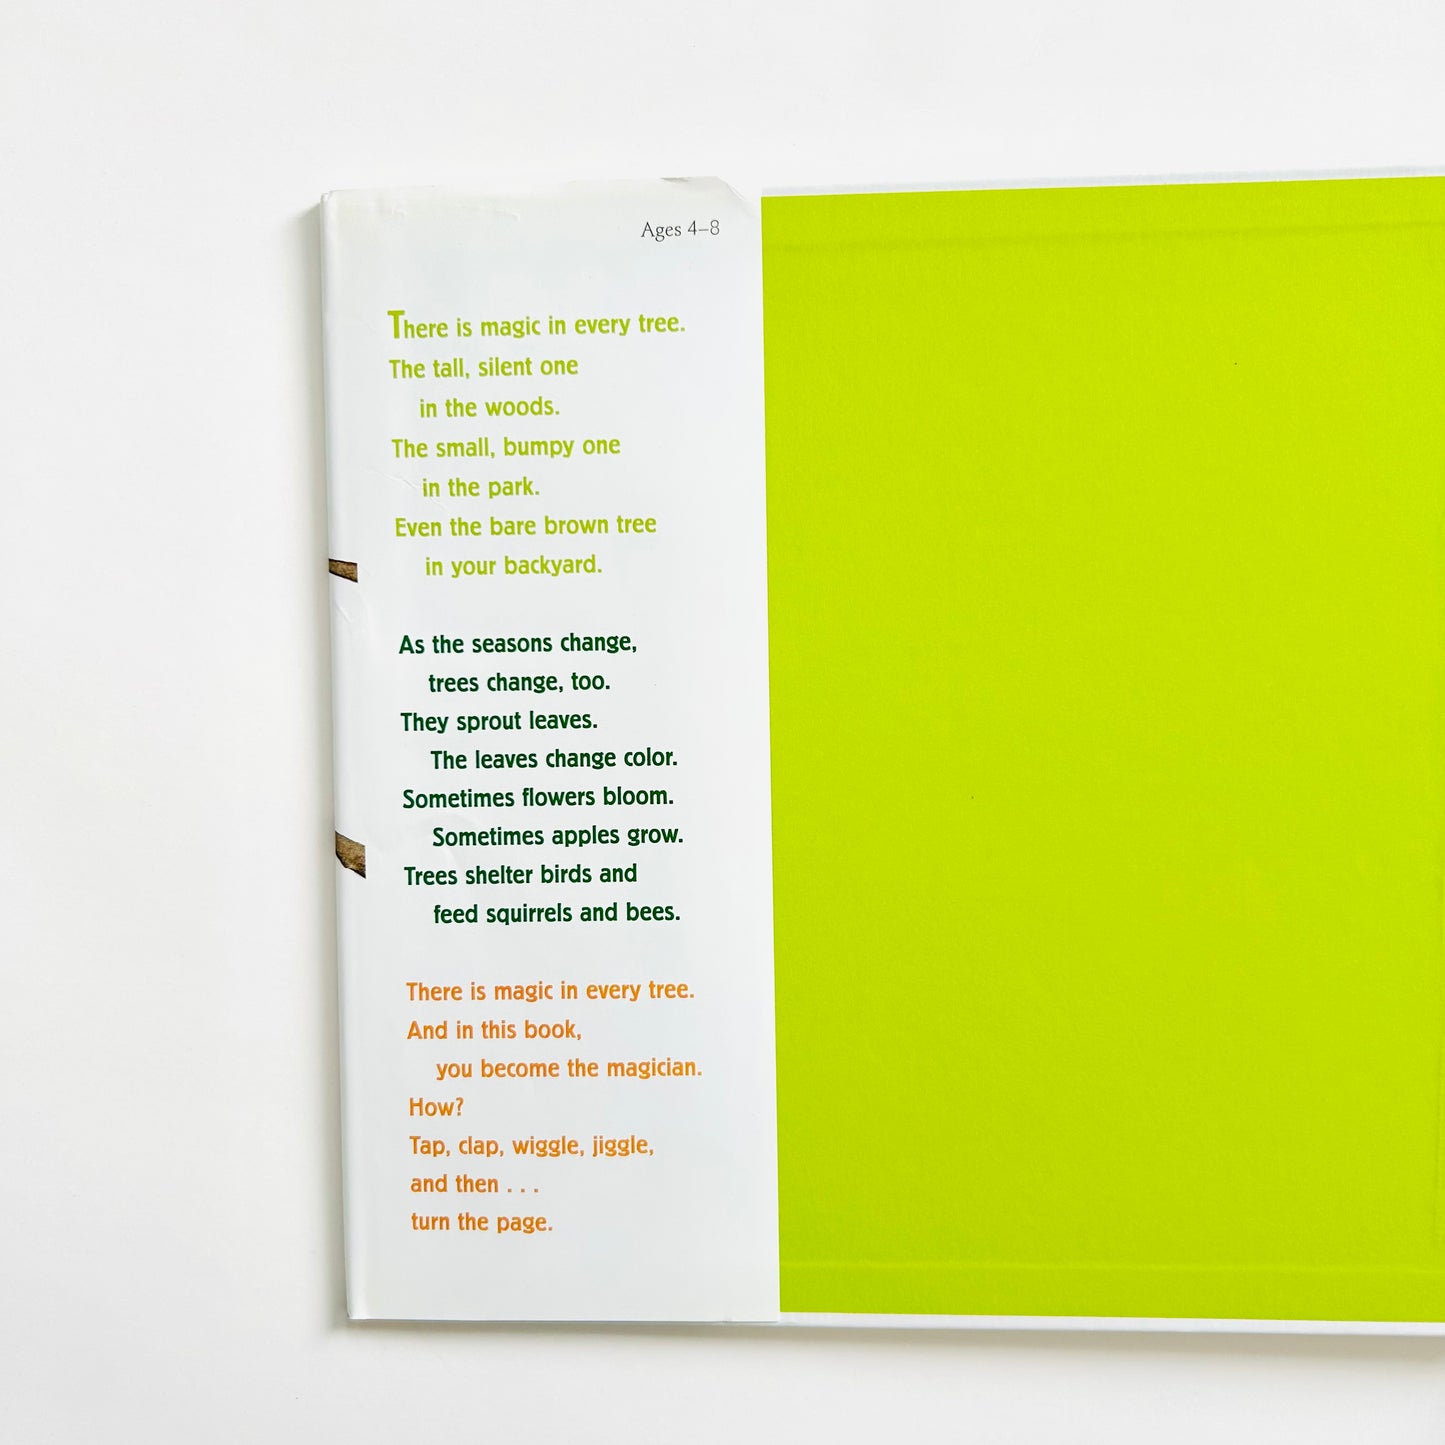 Ages 4–8
There is magic in every tree.
The tall, silent one
in the woods.
The small, bumpy one
in the park.
Even the bare brown tree
in your backyard.
As the seasons change,
trees change, too.
They sprout leaves.
The leaves change color.
Sometimes flowers bloom.
Sometimes apples grow.
Trees shelter birds and
feed squirrels and bees.
There is magic in every tree.
And in this book,
you become the magician.
How?
Tap, clap, wiggle, jiggle,
and then . . .
turn the page.